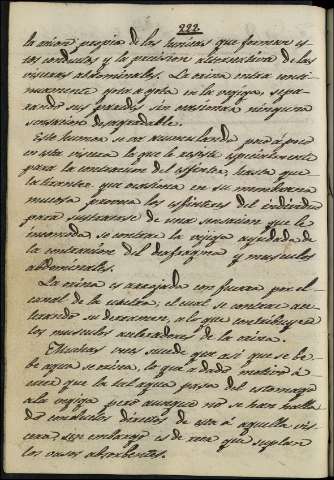 222
la accion propia de las tunicas que forman es
tos conductos y la presion alternativa de las
visceras abdominales. La orina entra conti
nuamente gota a gota en la vejiga, sepa
rando sus paredes sin ocasionar ninguna
sensacion desagradable.
Este humor se va acumulando poco á poco
en esta viscera la que le resiste especialmente
por la contraccion del esfinter, hasta que
la que ocasiona en su membrana
mucosa provoca los esfuerzos del individuo
para sustraerse de una sensacion que le
incomoda, se contrae la vejiga ayudada de
la contraccion del diafragma y musculos
abdominales.
La orina es arrojada con fuerza por el
canal de la uretra, el cual se contrae
su derramen, a lo que contribuyen
los musculos aceleradores de la orina.
Muchas veces sucede que asi que se be
be agua se orina, lo que a dado motivo á
creer que la tal agua pasa del estomago
a la vejiga pero aunque no se han halla
do conductos directos de esta á aquella vis
cera, sin embargo es de creer que suplan
los vasos absorbentes.